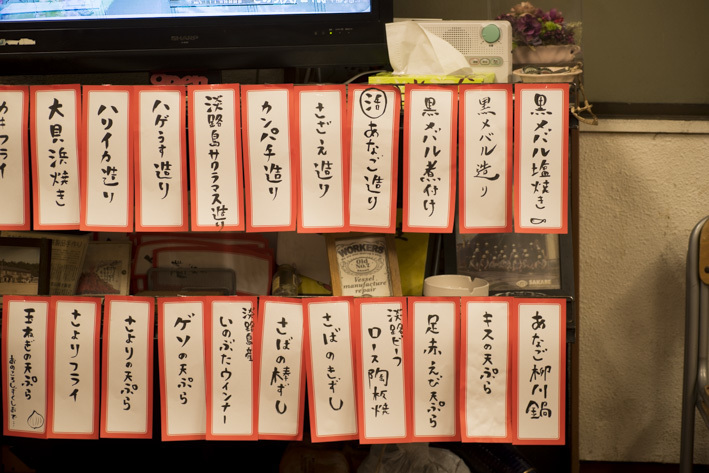 SHARP
黒メバル塩焼き
黒メバル造り
黒メバル煮付け
活あなご造り
さざえ造り
カンパチ造り
淡路島サクラマス造り
ハゲうす造り
ハリイカ造り
大貝浜焼き
フライ
WORKERS
Old No.7
Vessel
manufacture
repair
あなご柳川鍋
キスの天ぷら
足赤えび天ぷら
淡路ビーフ
ロース陶板焼
さばのきずし
さばの棒ずし
淡路島産
いのぶたウインナー
ゲソの天ぷら
さよりの天ぷら
さよりフライ
玉ねぎの天ぷら